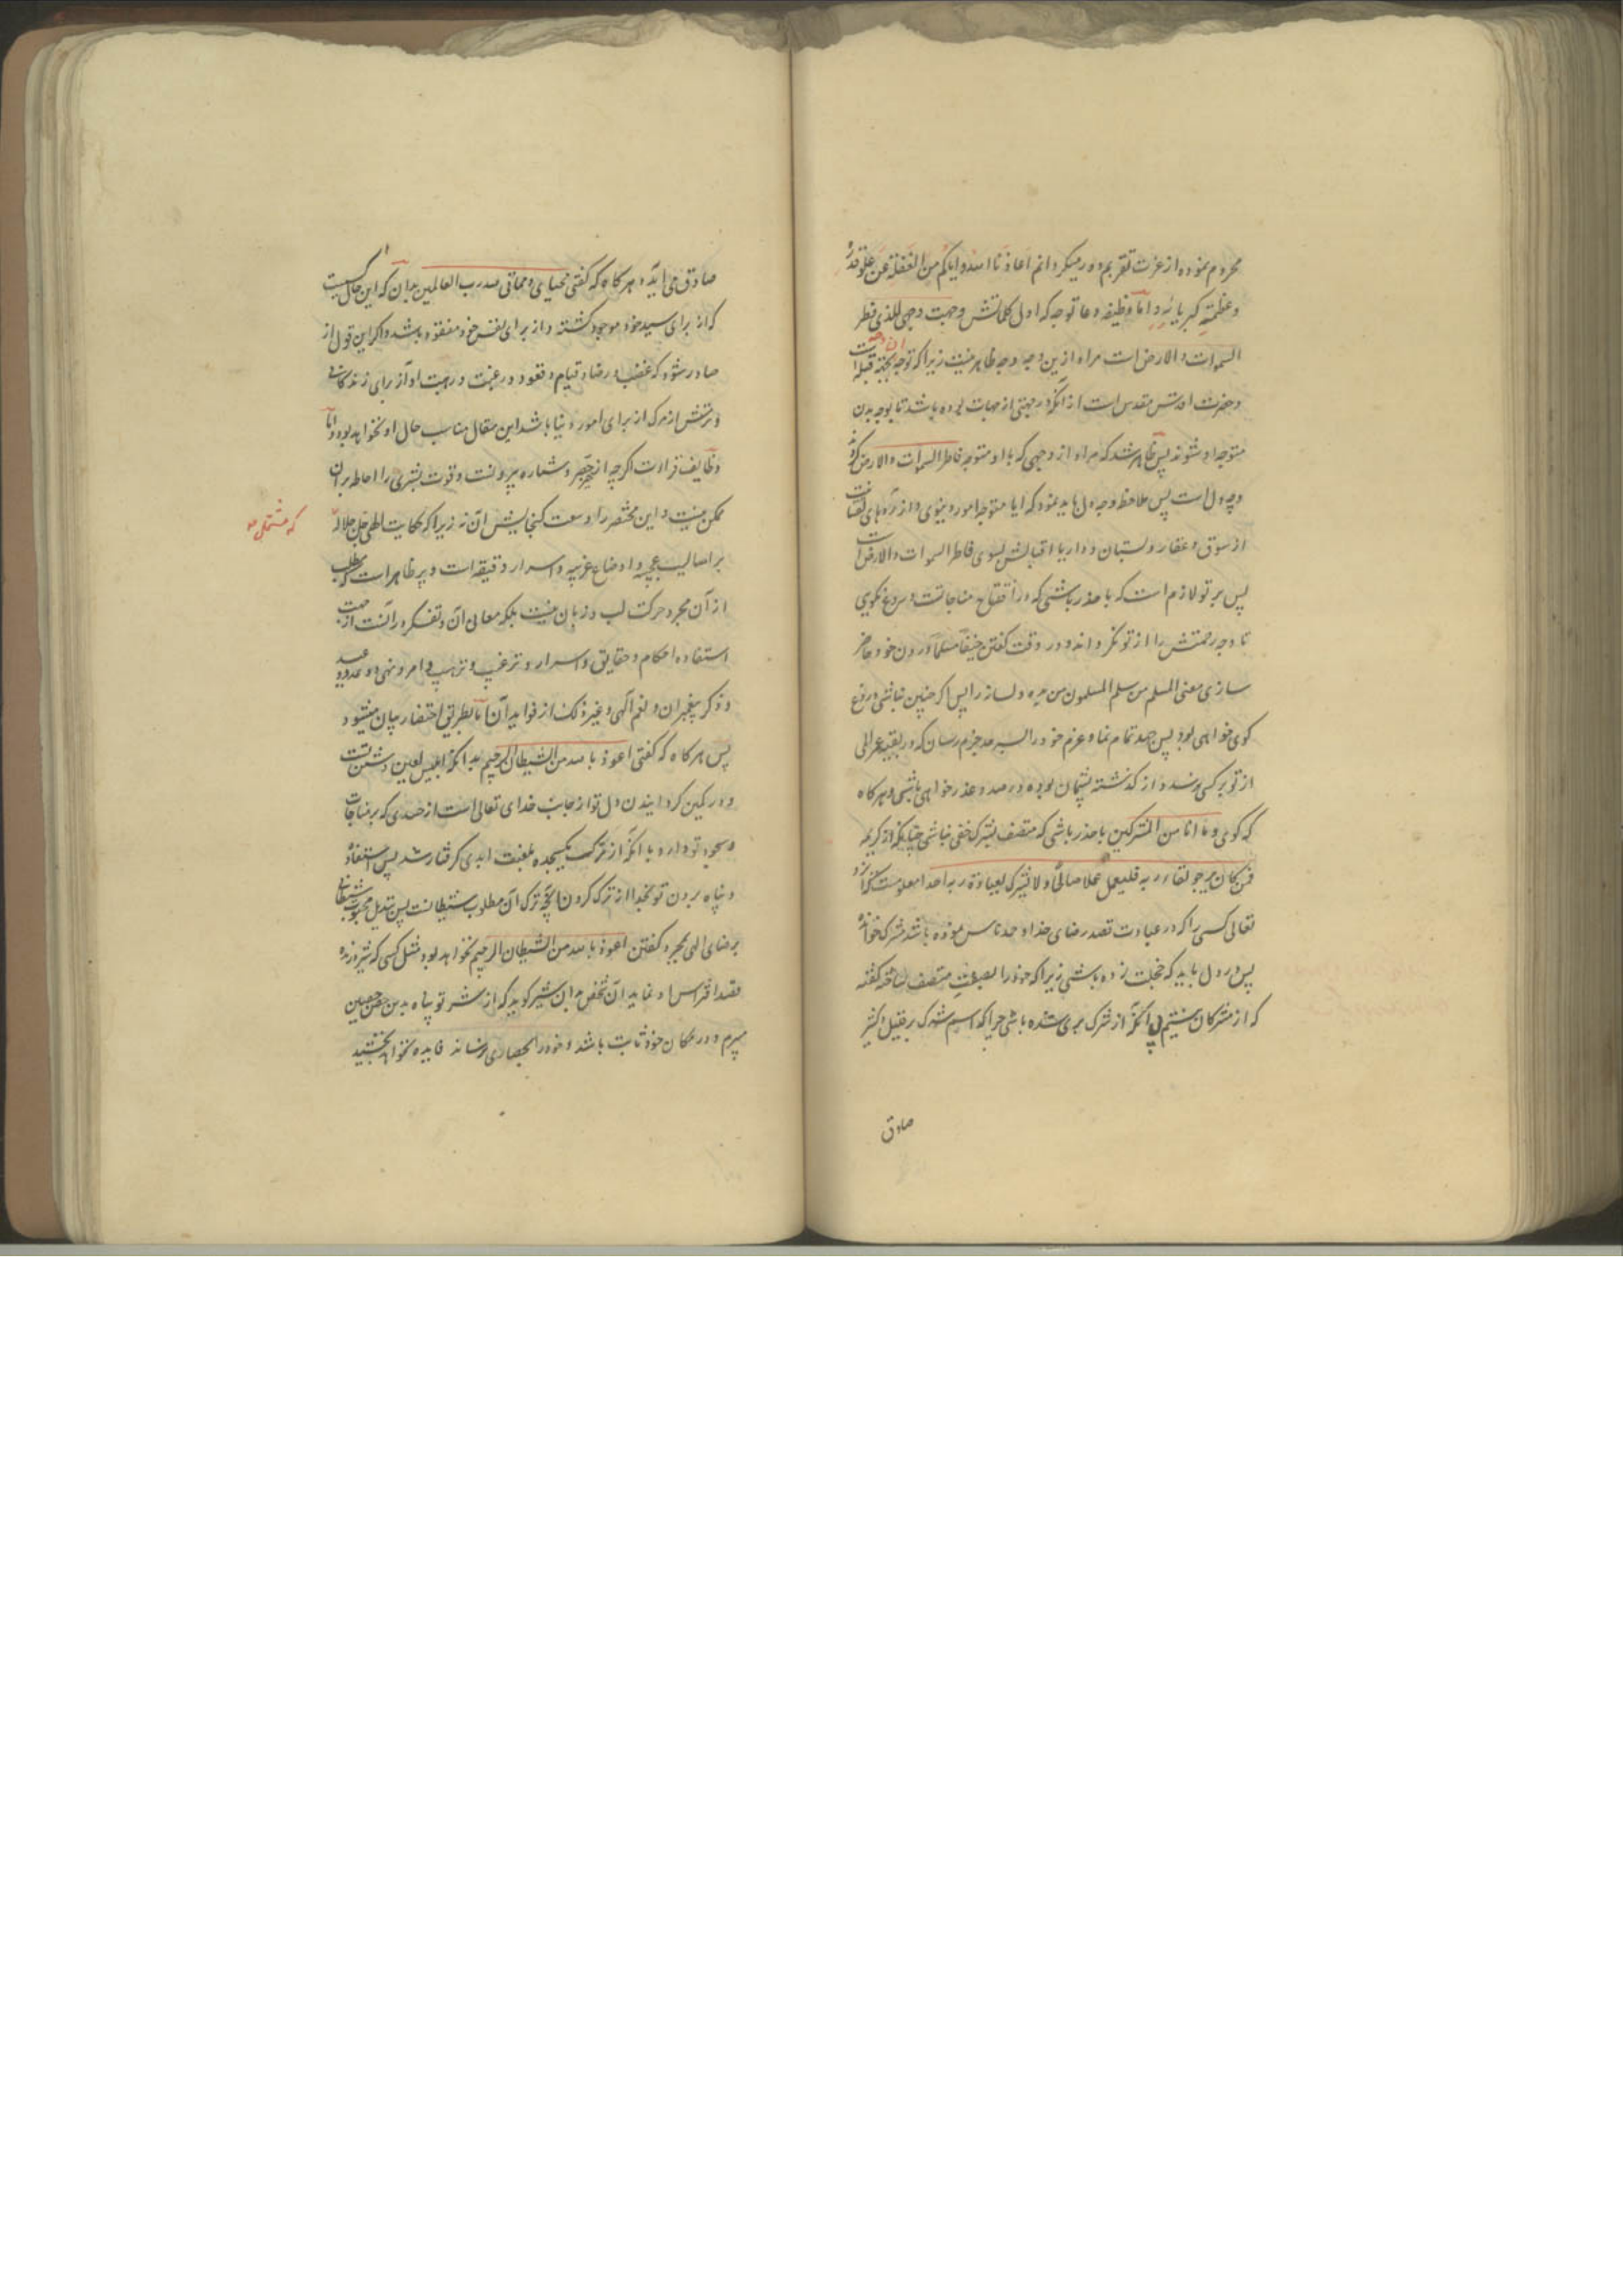 محروم نموده از عزت تقربم دور میکردانم اعاذنا الله وایاکم من الغفلة عن علو قدره
وعظمته کبریائه و اما وظیفه دعا توجه که اول کلماتش وجهت وجهی للذی فطر
السموات والارض است مراد ازین وجه وجه ظاهر نیست زیرا که توجه بجهة قبله است
وحضرت اقدس مقدس است از انکه در جهتی از جهات بوده باشد تا بوجه بدن
متوجه او شوند پس ظاهر شد که مراد از وجهی که با او متوجه فاطر السموات والارض
وجه دل است پس ملاحظه وجه دل باید نمود که ایا متوجه امور دنیوی و از راه های
از سوق و عقار و بستان و دار یا اقبالش بسوی فاطر السموات والارض است
پس بر تو لازم است که با حذر باشی که در افتتاح مناجاتت دروغ نکوئی
تا وجه رحمتش را از تو نکرداند و در وقت کفتن حنیفا مسلما در دل خود حاضر
سازی معنی المسلم من سلم المسلمون من یده ولسانه را پس اکر چنین نباشی دروغ
کوی خواهی بود پس جهد تمام نما و عزم خود را بسر حد جزم رسان که در بقیه عمر المی
از تو بر کسی نرسد و از کذشته پشیمان بوده در صدد عذر خواهی باشی و هر کاه
که کوئی وما انا من المشرکین با حذر باشی که متصف بشرک خفی نباشی چنانکه از کریمه
فمن کان یرجو لقاء ربه فلیعمل عملا صالحا ولا یشرک بعبادة ربه احدا معلومست که
تعالی کسی را که در عبادت قصد رضای خدا و حمد ناس نموده باشد مشرک خوانده
پس در دل باید که خجلت زده باشی زیرا که خود را بصفت متصف ساخته کفته
که از مشرکان نیستم بی انکه از شرک بری شده باشی چرا که اسم شرک بر قلیل و کثیر
صادق
صادق می اید و هر کاه که کفتی محیای ومماتی لله رب العالمین بدان که این حال کسیست
که از برای سید خود موجود کشته و از برای نفس خود مفقود باشد و اکر این قول از
صادر شود که غضب و رضا و قیام و قعود و رغبت و رهبت او از برای زندکانی
و ترسش از مرک از برای امور دنیا باشد این مقال مناسب حال او نخواهد بود و اما
وظایف قراءت اکرچه از حصر و شماره بیرونست و قوت بشری را احاطه بر ان
ممکن نیست و این مختصر را وسعت کنجایش ان نه زیرا که حکایت الهی جل جلاله
که مشتمل
بر اسالیب عجیبه و اوضاع غریبه و اسرار دقیقه است و بر ظاهر است که مطلب
از آن مجرد حرکت لب و زبان نیست بلکه معانی آن و تفکر در آنست از جهت
استفاده احکام و حقایق و اسرار و ترغیب و ترهیب و امر و نهی و وعد و وعید
و ذکر پیغمبران و نعم الهی و غیر ذلک از فواید آن اما بطریق اختصار بیان میشود
پس هر کاه که کفتی اعوذ بالله من الشیطان الرجیم بدانکه ابلیس لعین دشمن تست
و در کمین کردانیدن دل تو از جانب خدای تعالی است از حسدی که بر مناجات
و سجود تو دارد با انکه از ترک یکسجده بلعنت ابدی کرفتار شد پس استعاذه
و پناه بردن تو بخدا از ترک کردن آنچه ترک آن مطلوب شیطانست پس تبدیل محبوب شیطان
برضای الهی بمجرد کفتن اعوذ بالله من الشیطان الرجیم نخواهد بود مثل کسی که شیر درنده
قصد افتراس او نماید آن شخص بدان شیر کوید که از شر تو پناه بدین حصن حصین
میبرم و در مکان خود ثابت باشد و خود را بحصاری نرساند فایده نخواهد بخشید